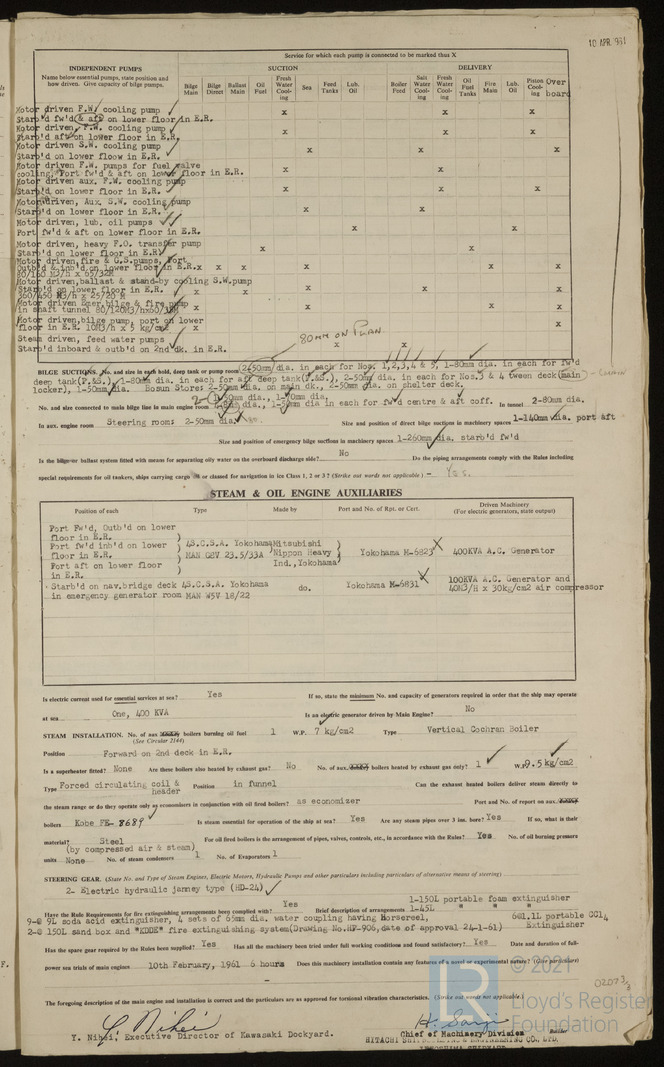 10 APR 961
Service for which each pump is connected to be marked thus X
INDEPENDENT PUMPS
Name below essential pumps, state position and how driven. Give capacity of bilge pumps.
SUCTION
DELIVERY
Bilge Main Bilge Direct Ballast Main Oil Fuel Fresh Water Cooling Sea Feed Tanks Lub. Oil Boiler Feed Salt Water Cooling Fresh Water Cooling Oil Fuel Tanks Fire Main Lub. Oil Piston Cooling Over board
Motor driven F.W. cooling pump
Starb'd fw'd & aft on lower floor in E.R. x x x
Motor driven, F.W. cooling pump
Starb'd aft on lower floor in E.R. x x x
Motor driven S.W. cooling pump
Starb'd on lower floow in E.R. x x x
Motor driven F.W. pumps for fuel valve
cooling, Port fw'd & aft on lower floor in E.R. x x
Motor driven aux. F.W. cooling pump
Starb'd on lower floor in E.R. x x x
Motor driven, Aux. S.W. cooling pump
Starb'd on lower floor in E.R. x x
Motor driven, lub. oil pumps
Port fw'd & aft on lower floor in E.R. x x
Motor driven, heavy F.O. transfer pump
Starb'd on lower floor in E.R. x x
Motor driven, fire & G.S. pumps, Port
Outb'd & inb'd on lower floor in E.R. x x x x x x
80/160 M3/h x 65/32M
Motor driven, ballast & stand-by cooling S.W. pump
Starb'd on lower floor in E.R. x x x x x
360/450 M3/h x 25/20 M
Motor driven Emer. bilge & fire pump
in shaft tunnel 80/120M3/hx60/35M x x x x
Motor driven, bilge pump, port on lower
floor in E.R. 10M3/h x 5 kg/cm2 x x
80 MM ON PLAN
Steam driven, feed water pumps
Starb'd inboard & outb'd on 2nd dk. in E.R. x x
BILGE SUCTIONS. No. and size in each hold, deep tank or pump room 2-50mm/dia. in each for Nos. 1,2,3,4 & 5, 1-80mm dia. in each for fw'd
deep tank(P.&S.), 1-80mm dia. in each for aft deep tank(P.&S.), 2-50mm dia. in each for Nos.3 & 4 tween deck(main) - CHAIN
locker), 1-50mm dia. Bosun Store; 2-50mm dia. on main dk., 2-50mm dia. on shelter deck.
No. and size connected to main bilge line in main engine room 1-50mm dia. in each for fw'd centre & aft coff. In tunnel 2-80mm dia.
In aux. engine room Steering room; 2-50mm dia. Size and position of direct bilge suctions in machinery spaces 1-140mm dia. port aft
Size and position of emergency bilge suctions in machinery spaces 1-260mm dia. starb'd fw'd
Is the bilge or ballast system fitted with means for separating oily water on the overboard discharge side? No Do the piping arrangements comply with the Rules including
special requirements for oil tankers, ships carrying cargo oil or classed for navigation in Ice Class 1, 2 or 3? (Strike out words not applicable) - Yes.
STEAM & OIL ENGINE AUXILIARIES
Position of each Type Made by Port and No. of Rpt. or Cert. Driven Machinery
(For electric generators, state output)
Port Fw'd, Outb'd on lower
floor in E.R.
Port fw'd inb'd on lower 4S.C.S.A. Yokohama Mitsubishi
floor in E.R. MAN G8V 23.5/33A Nippon Heavy Yokohama M-6823 400KVA A.C. Generator
Port aft on lower floor Ind., Yokohama
in E.R.
Starb'd on nav.bridge deck 4S.C.S.A. Yokohama do. Yokohama M-6831 100KVA A.C. Generator and
in emergency generator room MAN W5V 18/22 40M3/H x 30kg/cm2 air compressor
Is electric current used for essential services at sea? Yes If so, state the minimum No. and capacity of generators required in order that the ship may operate
at sea One, 400 KVA Is an electric generator driven by Main Engine? No
STEAM INSTALLATION. No. of aux boilers burning oil fuel 1 W.P. 7 kg/cm2 Type Vertical Cochran Boiler
(See Circular 2144)
Position Forward on 2nd deck in E.R.
Is a superheater fitted? None Are these boilers also heated by exhaust gas? No No. of aux. boilers heated by exhaust gas only? 1 W.P. 9.5 kg/cm2
Type Forced circulating coil & header Position in funnel Can the exhaust heated boilers deliver steam directly to
the steam range or do they operate only as economisers in conjunction with oil fired boilers? as economizer Port and No. of report on aux.
boilers Kobe FE- 8689 Is steam essential for operation of the ship at sea? Yes Are any steam pipes over 3 ins. bore? Yes If so, what is their
material? Steel For oil fired boilers is the arrangement of pipes, valves, controls, etc., in accordance with the Rules? Yes No. of oil burning pressure
(by compressed air & steam)
units None No. of steam condensers 1 No. of Evaporators 1
STEERING GEAR. (State No. and Type of Steam Engines, Electric Motors, Hydraulic Pumps and other particulars including particulars of alternative means of steering)
2- Electric hydraulic janney type (HD-24)
1-150L portable foam extinguisher
Have the Rule Requirements for fire extinguishing arrangements been complied with? Yes Brief description of arrangements 1-45L " " "
9-@ 9L soda acid extinguisher, 4 sets of 65mm dia. water coupling having Horsereel, 6@1.1L portable CCl4
2-@ 150L sand box and "KDDE" fire extinguishing system(Drawing No.HF-906,date of approval 24-1-61) Extinguisher
Has the spare gear required by the Rules been supplied? Yes Has all the machinery been tried under full working conditions and found satisfactory? Yes Date and duration of full-
power sea trials of main engines 10th February, 1961 6 hours Does this machinery installation contain any features of a novel or experimental nature? (Give particulars)
-
The foregoing description of the main engine and installation is correct and the particulars are as approved for torsional vibration characteristics. (Strike out words not applicable)
02073/3
© 2021
Lloyd's Register
Foundation
LR
Y. Nihei
Y. Nihei, Executive Director of Kawasaki Dockyard.
Chief of Machinery Division Builder
HITACHI SHIPBUILDING & ENGINEERING CO., LTD.